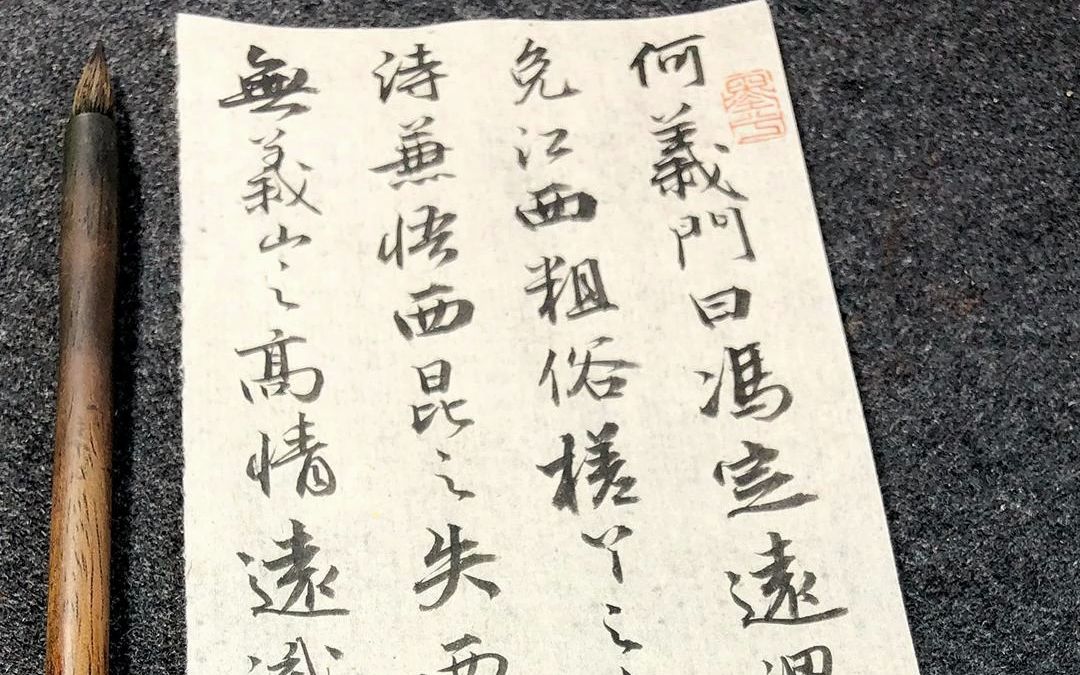 何義門曰馮定遠謂
免江西粗俗槎丫之
詩兼悟西昆之失西
無義山之高情遠識